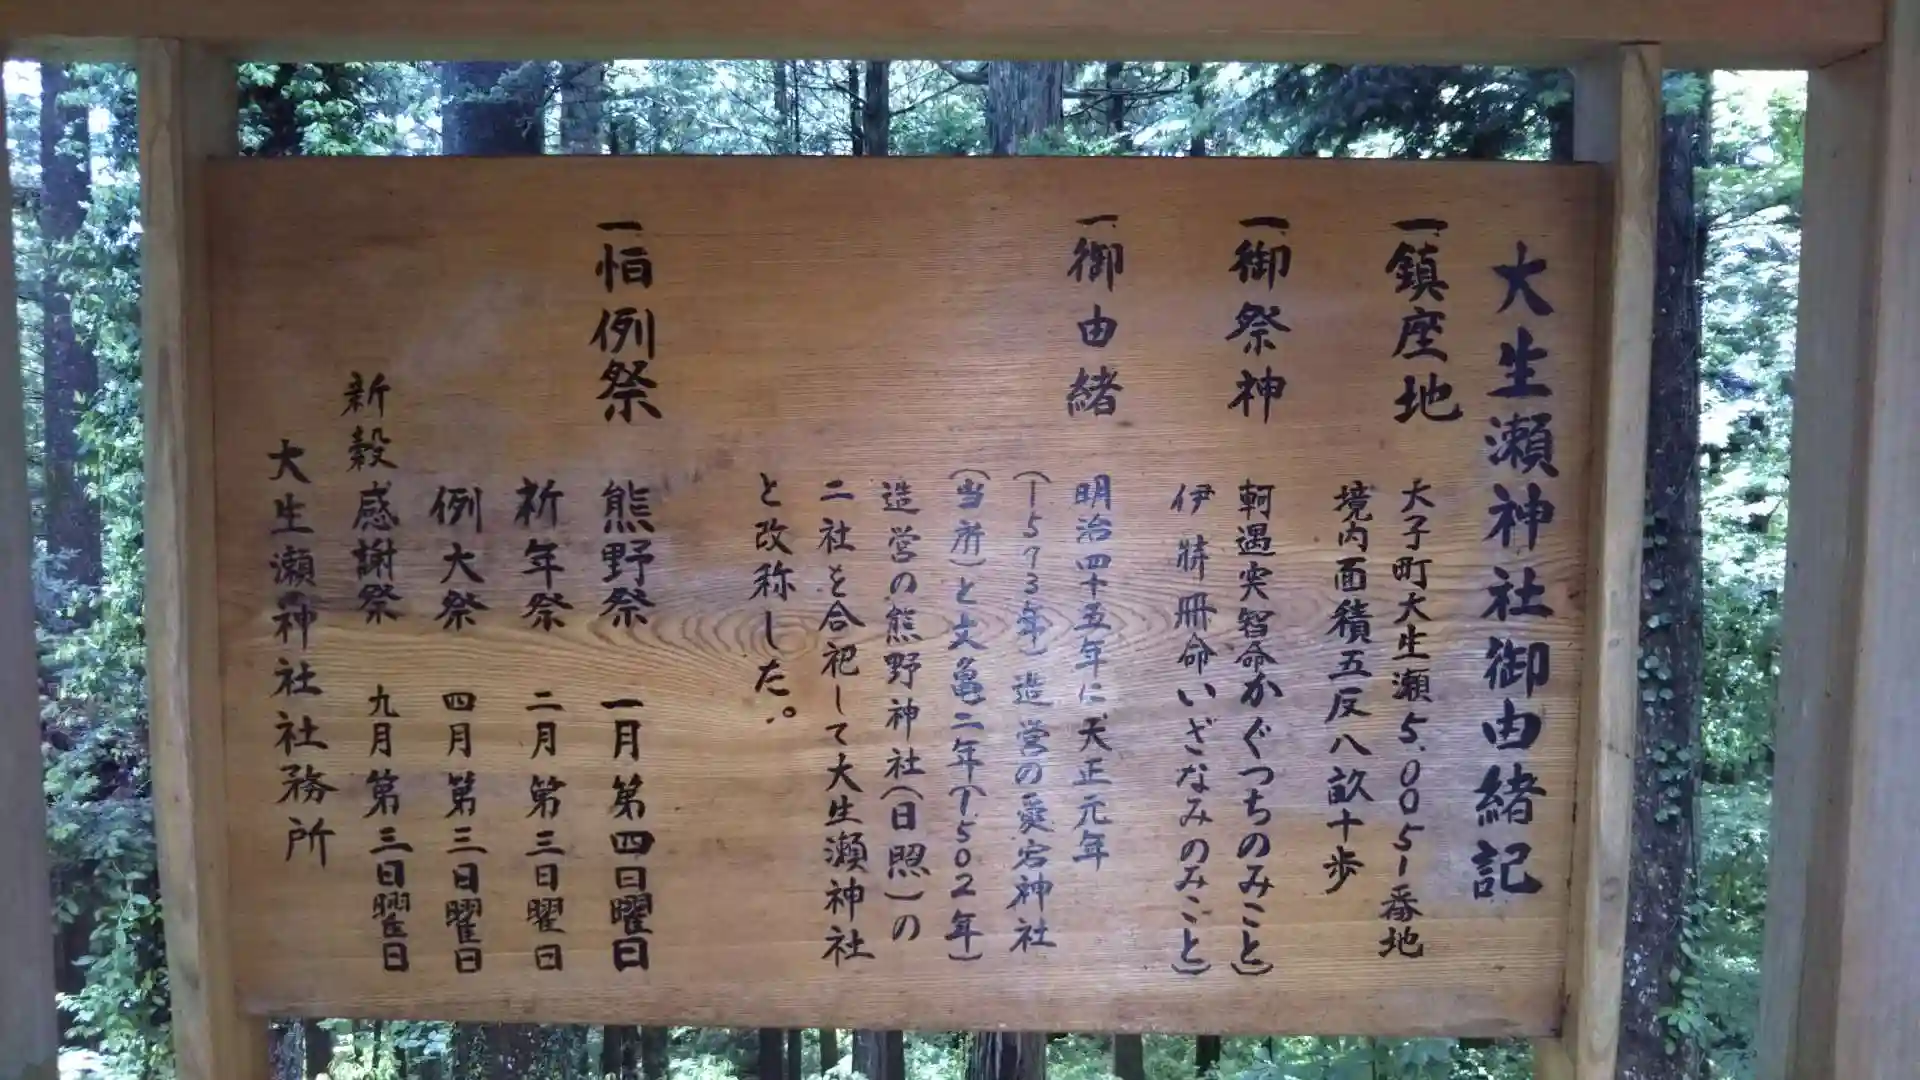 大生瀬神社御由緒記
一、鎮座地
大子町大生瀬5.005-1番地
境内面積五反八畝十歩
一、御祭神
軻遇突智命かぐつちのみこと)
伊弉冊命いざなみのみこと)
一、御由緒
明治四十五年に天正元年
(1573年)造営の愛宕神社
(当所)と文亀二年(1502年)
造営の熊野神社(日照)の
二社を合祀して大生瀬神社
と改称した。
一、恒例祭
熊野祭 一月第四日曜日
祈年祭 二月第三日曜日
例大祭 四月第三日曜日
新穀感謝祭 九月第三日曜日
大生瀬神社社務所